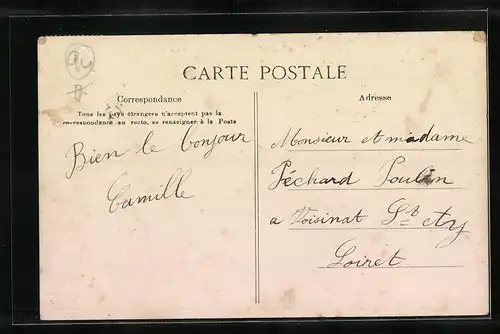 CARTE POSTALE
Correspondance
Tous les pays étrangers n'acceptent pas la
correspondance au recto, se renseigner à la Poste
Bien le bonjour
Camille
Adresse
Monsieur et madame
Péchard Poulin
a Voisinat St ay
Loiret